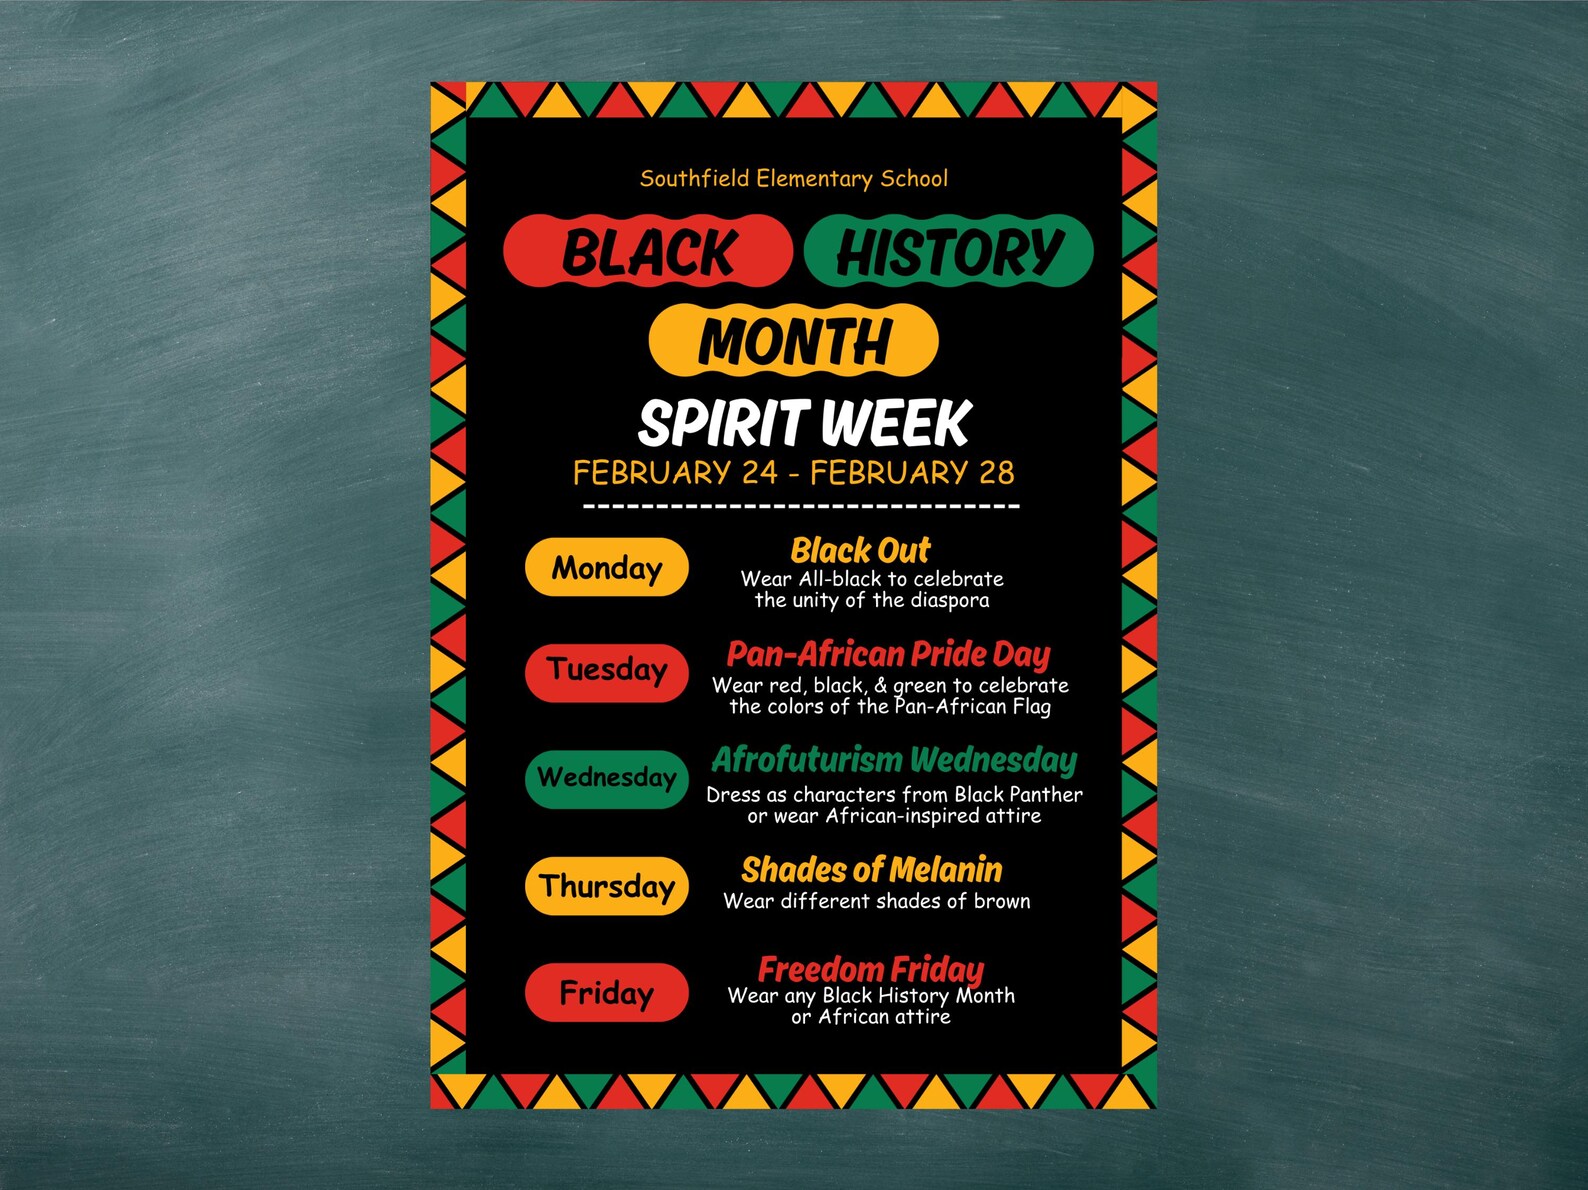 Southfield Elementary School
BLACK HISTORY
MONTH
SPIRIT WEEK
FEBRUARY 24 - FEBRUARY 28
Monday
Black Out
Wear All-black to celebrate
the unity of the diaspora
Tuesday
Pan-African Pride Day
Wear red, black, & green to celebrate
the colors of the Pan-African Flag
Wednesday
Afrofuturism Wednesday
Dress as characters from Black Panther
or wear African-inspired attire
Thursday
Shades of Melanin
Wear different shades of brown
Friday
Freedom Friday
Wear any Black History Month
or African attire